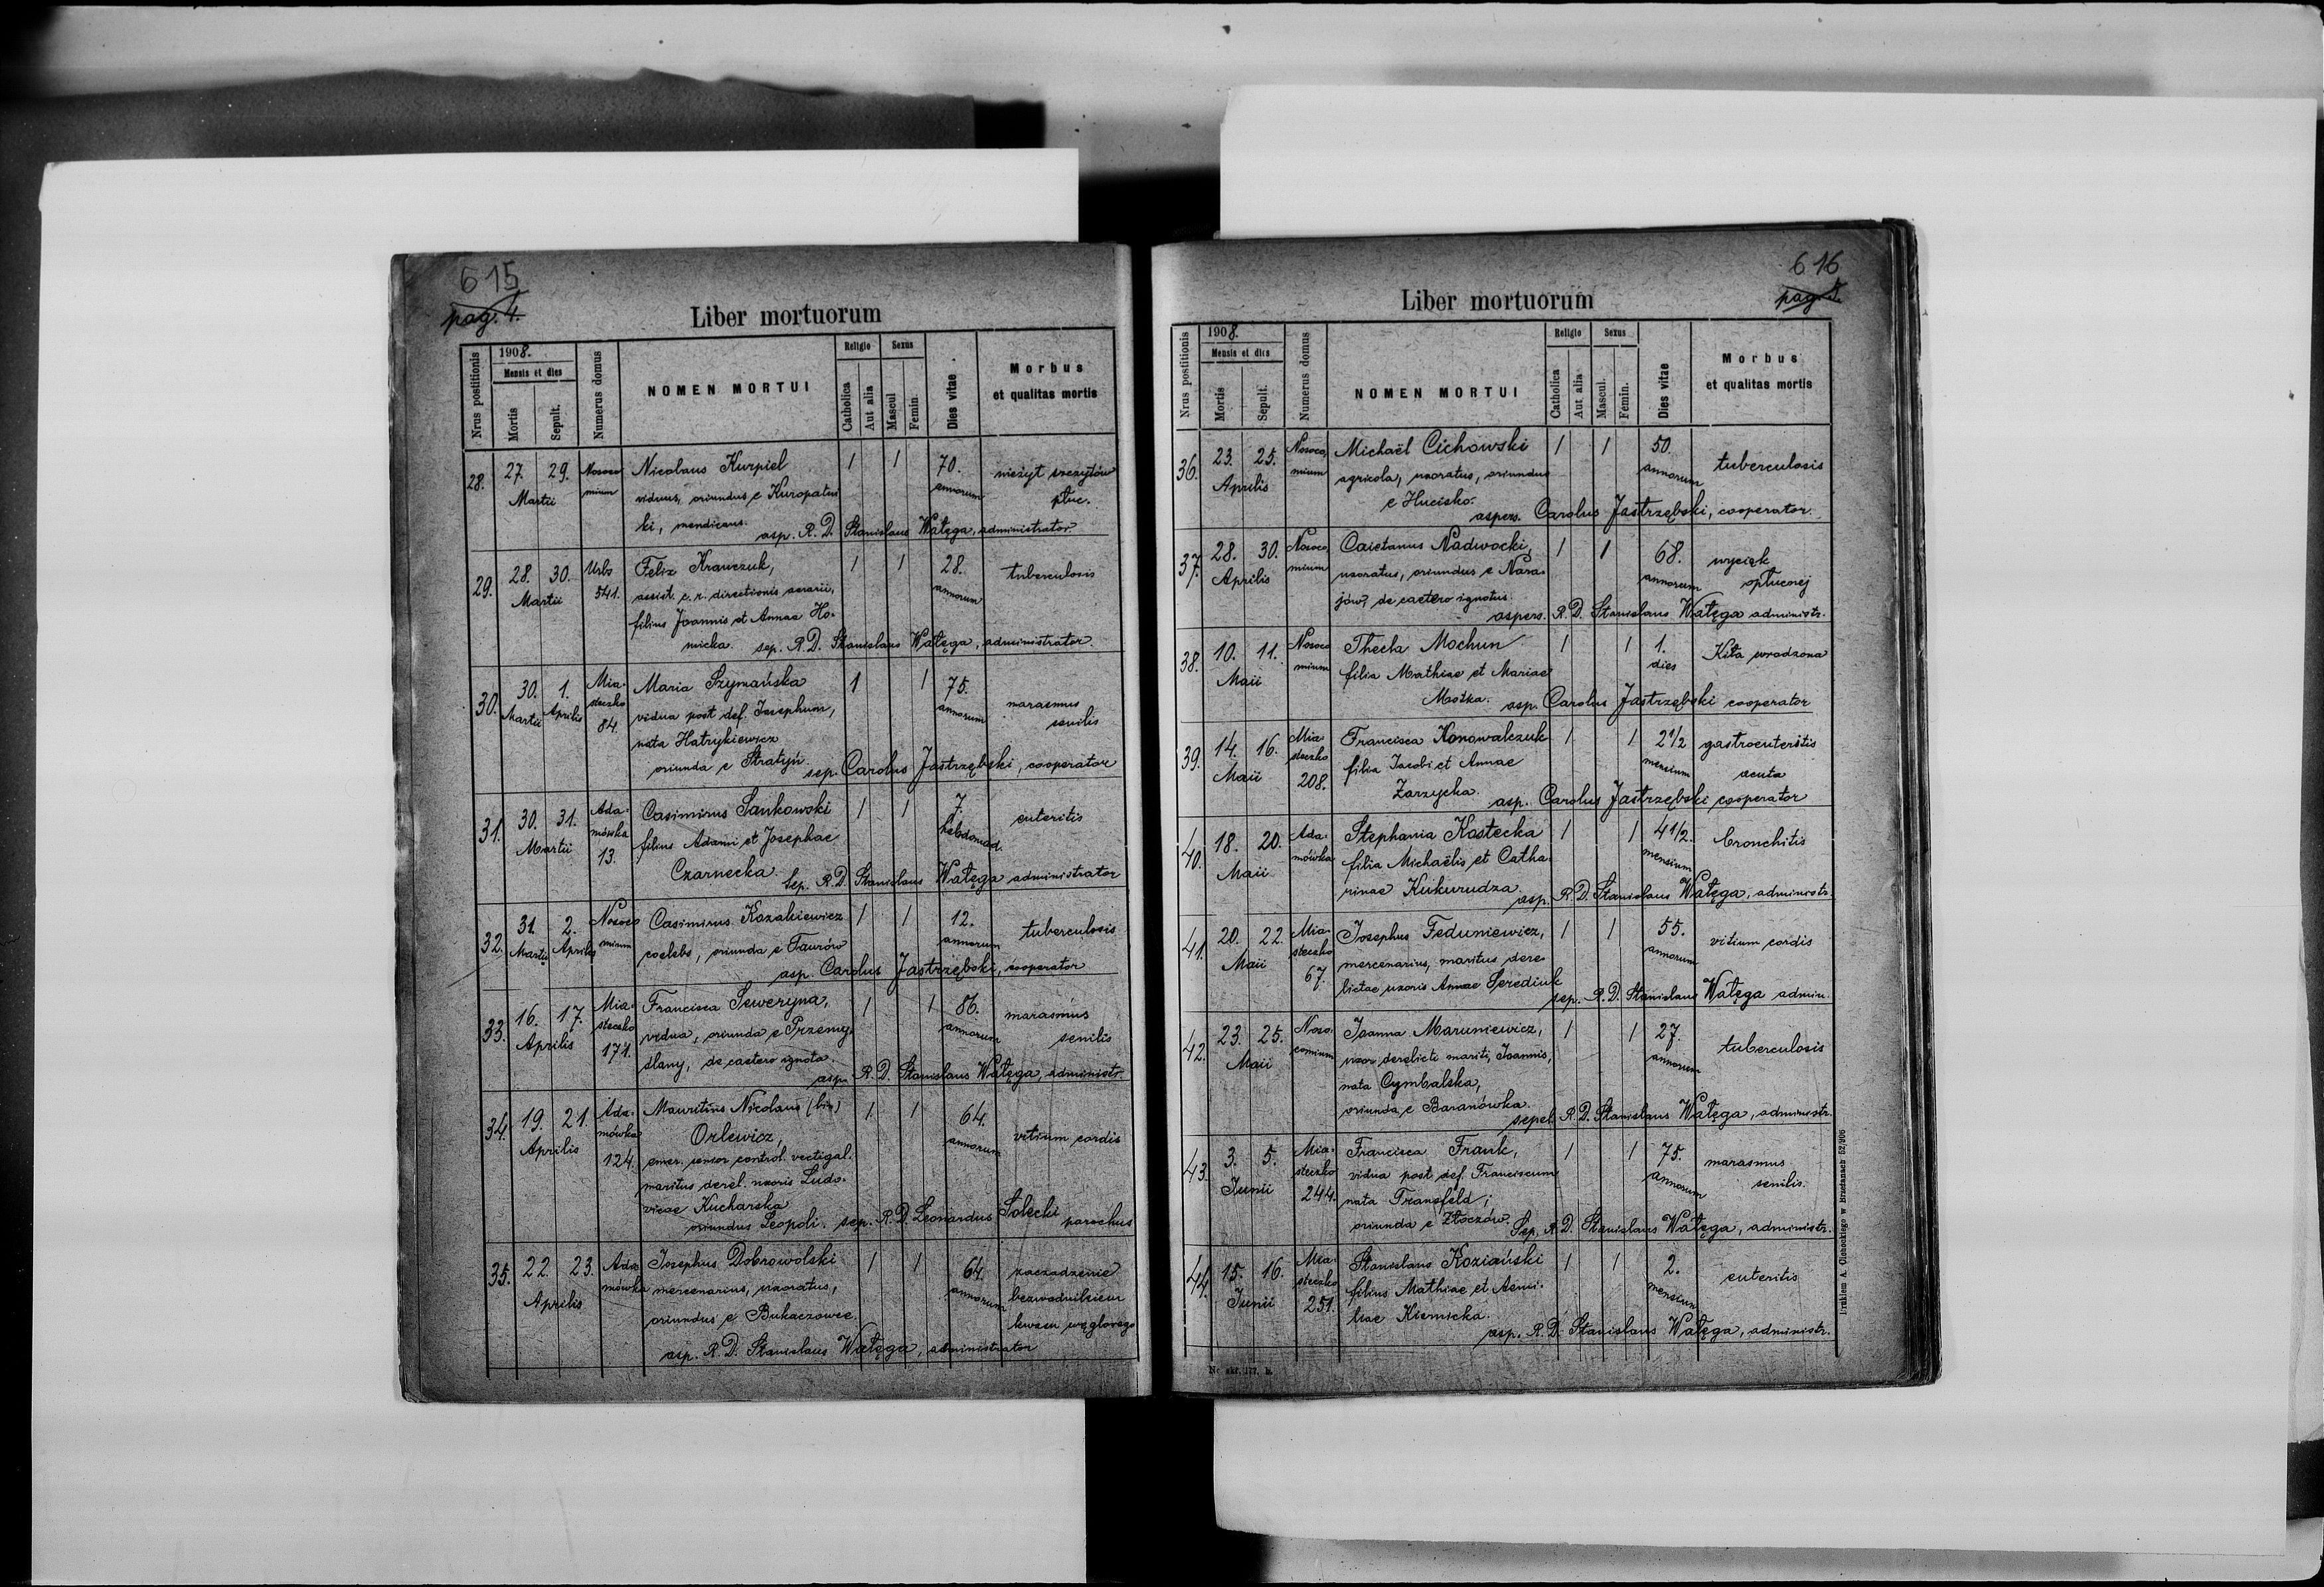 615
pag. 4.
Liber mortuorum
Nrus postitionis
1908.
Mensis et dies
Mortis
Sepult.
Numerus domus
NOMEN MORTUI
Religio
Catholica
Aut alia
Sexus
Mascul
Femin.
Dies vitae
Morbus
et qualitas mortis
28. 27. 29. Nosoco Nicolaus Kurpiel 1 1 70. nieżyt szczytów
Martii mium viduus, oriundus e Kuropatni annorum płuc.
ki, mendicans.
asp. R. D. Stanislaus Wałęga, administrator
29. 28. 30. Urbs Felix Krawczuk, 1 1 28. tuberculosis
Martii 541. assist. c. r. directionis aerarii, annorum
filius Joannis et Annae Ho-
nicka. sep. R. D. Stanislaus Wałęga, administrator.
30. 30. 1. Mia- Maria Szymańska 1 1 75. marasmus
Martii Aprilis steczko vidua post def. Josephum, annorum senilis
84. nata Hatrykiewicz
oriunda e Stratyń. sep. Carolus Jastrzębski, cooperator
31. 30. 31. Ada- Casimirus Sankowski 1 1 7. enteritis
Martii mówka filius Adami et Josephae hebdomad.
13. Czarnecka. Sep. R. D. Stanislaus Wałęga administrator
32. 31. 2. Nosoco Casimirus Kozakiewicz 1 1 12. tuberculosis
Martii Aprilis mium coelebs, oriunda e Taurów annorum
asp. Carolus Jastrzębski, cooperator
33. 16. 17. Mia- Francisca Seweryna, 1 1 86. marasmus
Aprilis steczko vidua, oriunda e Przemy- annorum senilis
171. ślany, de caetero ignota.
asp. R. D. Stanislaus Wałęga, administr.
34. 19. 21. Ada- Mauritius Nicolaus (bin) 1 1 64. vitium cordis
Aprilis mówka Orlewicz, annorum
124. emer. senior control. vectigal.
maritus derel. uxoris Ludo-
vicae Kucharska
oriundus Leopoli. sep. R. D. Leonardus Solecki parochus
35. 22. 23. Ada Josephus Dobrowolski 1 1 64. zaczadzenie
Aprilis mówka mercenarius, uxoratus, annorum bezwodnikiem
oriundus e Bukaczowce. kwasu węglowego
asp. R. D. Stanislaus Wałęga, administrator
616
pag. 5.
Liber mortuorum
Nrus postitionis
1908.
Mensis et dies
Mortis
Sepult.
Numerus domus
NOMEN MORTUI
Religio
Catholica
Aut alia
Sexus
Mascul.
Femin.
Dies vitae
Morbus
et qualitas mortis
36. 23. 25. Nosoco Michaël Cichowski 1 1 50. tuberculosis
Aprilis mium agricola, uxoratus, oriundus annorum
e Hucisko.
aspers. Carolus Jastrzębski, cooperator.
37. 28. 30. Nosoco Caietanus Nadwocki, 1 1 68. wyciek
Aprilis mium uxoratus, oriundus e Nara- annorum opłucnej
jów, de caetero ignotus.
aspers. R. D. Stanislaus Wałęga administr.
38. 10. 11. Nosoco Thecla Mochun 1 1 1. Kiła wrodzona
Maii mium filia Mathiae et Mariae dies
Motka. asp. Carolus Jastrzębski cooperator
39. 14. 16. Mia- Francisca Konowalczuk 1 1 2 1/2 gastroenteritis
Maii steczko filia Jacobi et Annae mensium acuta
208. Zarzycka. asp. Carolus Jastrzębski cooperator
40. 18. 20. Ada- Stephania Kostecka 1 1 4 1/2. bronchitis
Maii mówka filia Michaëlis et Catha- mensium
rinae Kukurudza. asp. R. D. Stanislaus Wałęga, administr.
41. 20. 22. Mia- Josephus Feduniewicz, 1 1 55. vitium cordis
Maii steczko mercenarius, maritus dere- annorum
67. lictae uxoris Annae Serediuk
sep. R. D. Stanislaus Wałęga admin.
42. 23. 25. Noso- Joanna Maruniewicz, 1 1 27. tuberculosis
Maii comium uxor derelicti mariti, Joannis, annorum
nata Cymbalska,
oriunda e Baranówka.
sepel. R. D. Stanislaus Wałęga, administr.
43. 3. 5. Mia- Francisca Frank, 1 1 75. marasmus
Junii steczko vidua post def. Franciscum annorum senilis.
244. nata Transfeld;
oriunda e Złoczów. Sep. R. D. Stanislaus Wałęga, administr.
44. 15. 16. Mia- Stanislaus Koziański 1 1 2. enteritis
Junii steczko filius Mathiae et Aemi- mensium
251. liae Kiernicka.
asp. R. D. Stanislaus Wałęga, administr.
Drukiem A. Cichockiego w Brzeżanach 52/906